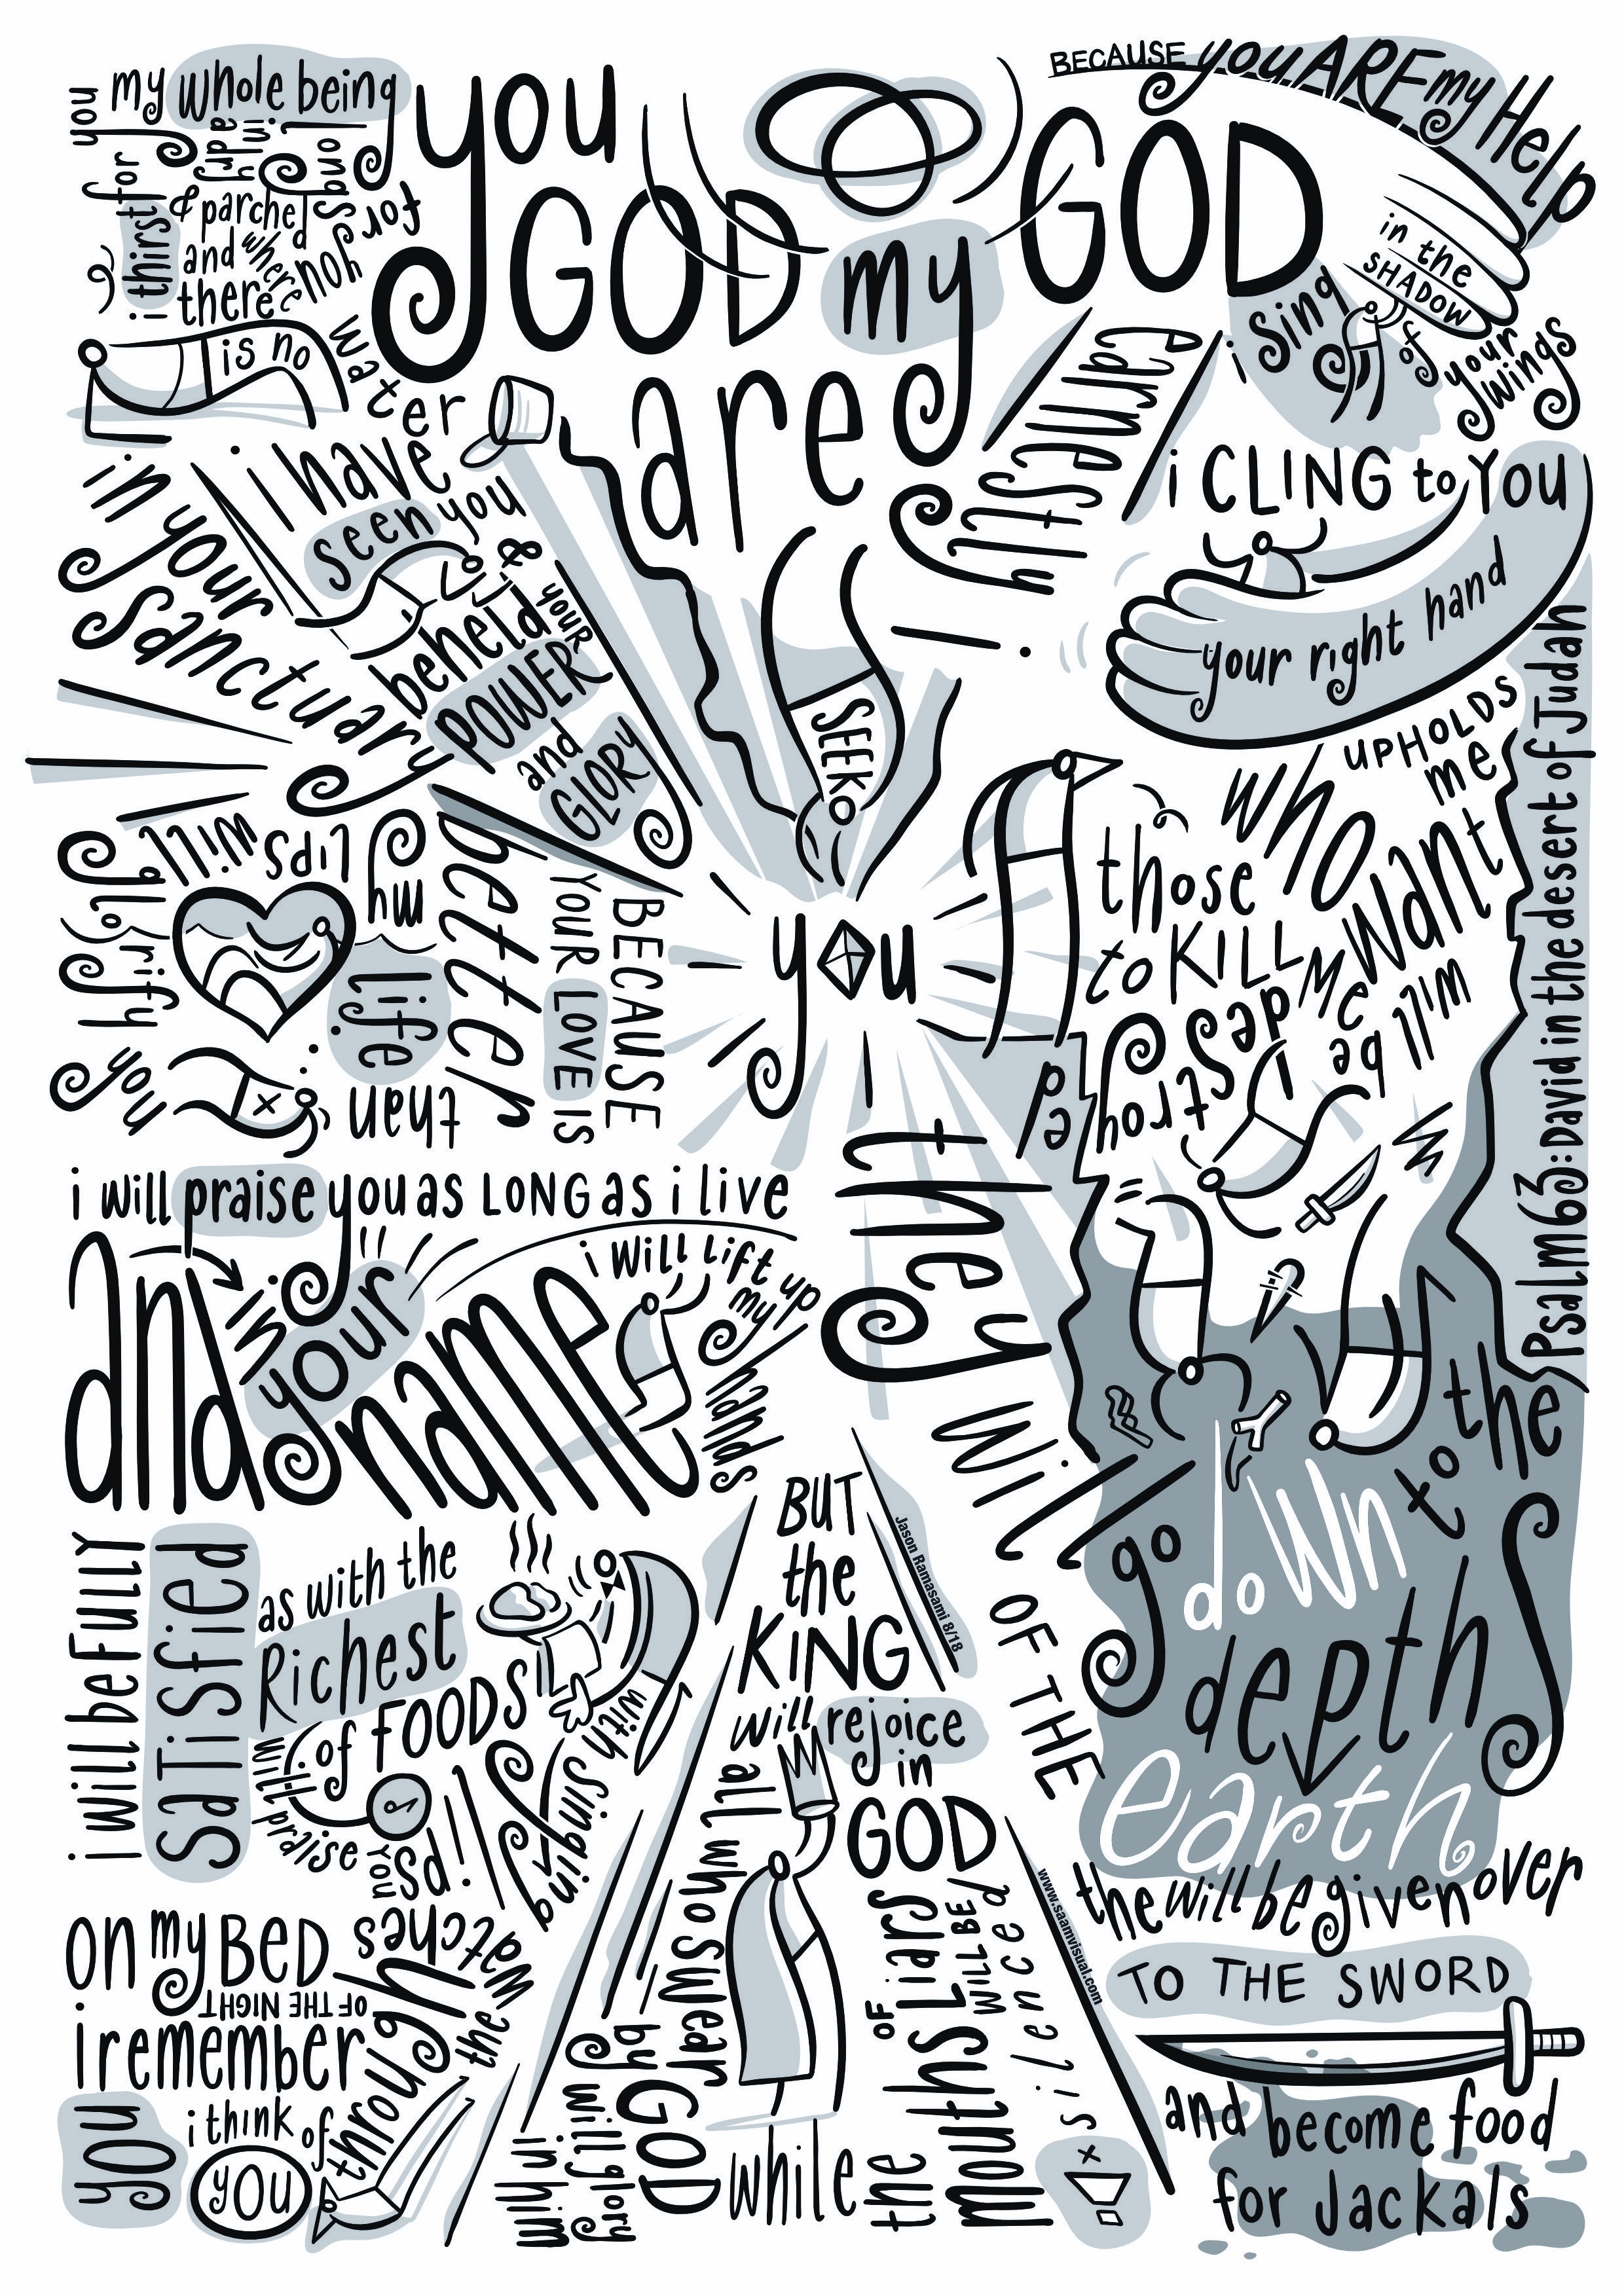 you GOD
are
my GOD
earnestly
i
SEEK
you
i thirst for
you
my whole being
longs
for you
in a dry
& parched
and where
there
is no
water
i have
seen you
in your
Sanctuary
&
beheld
your
POWER
and
GLORY
BECAUSE
YOUR LOVE IS
better
than
life
my
Lips
will
glorify
you
i will praise you as LONG as i live
and
in
your
name
i will Lift up
my
hands
i will be FULLY
SaTiSfied
as with the
Richest
of FOODS
with singing
Lips
will praise
you
on my BED
i remember
you
i think of
you
through
the
watches
OF THE NIGHT
BECAUSE you ARE my Help
i Sing
in the
SHADOW
of
your
wings
i CLING to YOU
your right hand
UPHOLDS
me
those
WHO
Want
to KILL
Me
will
be
destroyed
they will
go
down
to the
depths
OF THE
earth
the will be given over
TO THE SWORD
and become food
for Jackals
BUT
the
KING
will rejoice
in
GOD
all who swear
by GOD
will glory
in him
while
the
mouths
OF
Liars
WILL BE
silenced
Psalm 63: David in the desert of Judah
Jason Ramasami 8/18
www.saamvisual.com